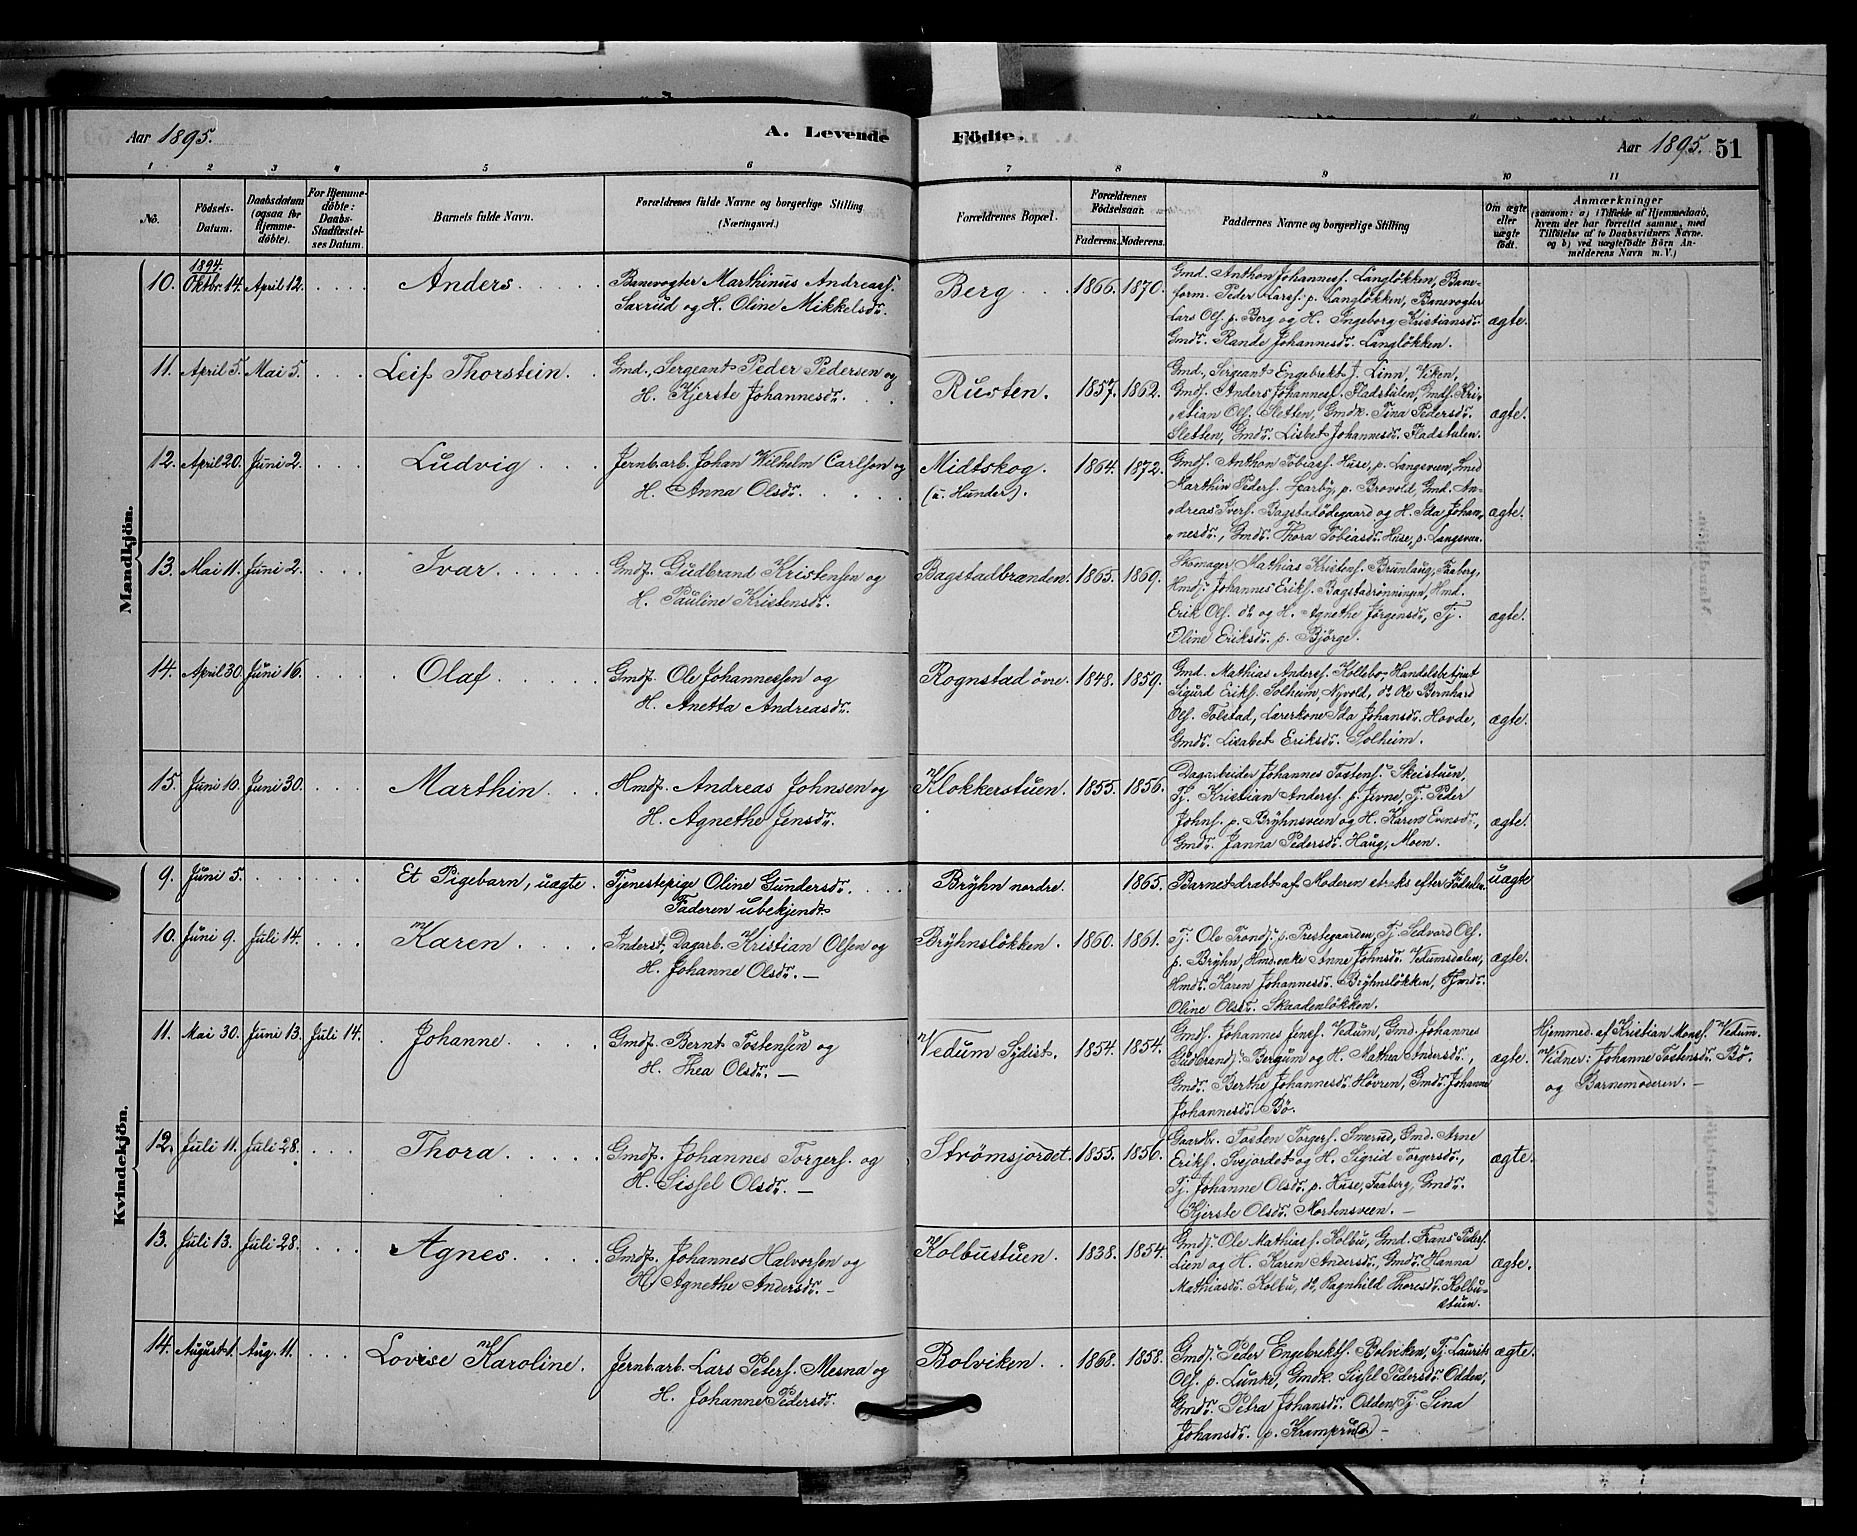 Aar 1895. A. Levende Födte. Aar 1895. 51
1 2 3 4 5 6 7 8 9 10 11
No. Födsels-Datum. Daabsdatum (ogsaa for Hjemme-döbte). For Hjemme-döbte: Daabs-Stadfæstel-ses Datum. Barnets fulde Navn. Forældrenes fulde Navne og borgerlige Stilling (Næringsvei). Forældrenes Bopæl. Forældrenes Födselsaar. Faderens. Moderens. Faddernes Navne og borgerlige Stilling Om ægte eller uægte født. Anmærkninger
(saasom: a) i Tilfælde af Hjemmedaab, hvem der har forrettet samme, med Tilföielse af to Daabsvidners Navne, og b) ved uægtefödte Börn Anmelderens Navn m. V.)
Mandkjön.
1894.
10. Oktbr. 14. April 12. Anders Banevogter Marthinus Andreass.
Saxrud og H. Oline Mikkelsdr.
Berg 1866. 1870.
Gmd. Anthon Johanness. Langløkken, Bane-
form. Peder Larss. p. Langløkken, Banevogter
Lars Ols. p. Berg og H. Ingeborg Kristiansdr.
Gmdr. Rande Johannesdr. Langløkken.
ægte.
11. April 5. Mai 5. Leif Thorstein. Gmd. Sergeant Peder Pedersen og
H. Kjerste Johannesdr.
Rusten. 1857. 1862.
Gmd. Sergeant Engebrekt J. Linn, Viken,
Gmds. Anders Johanness. Fladstulen, Gmds. Kri-
stian Ols. Sletten, Gmdk. Tina Pedersdr.
Sletten, Gmdr. Lisbet Johannesdr. Fladstulen.
ægte.
12. April 20. Juni 2. Ludvig Jernb.arb. Johan Wilhelm Carlsen og
H. Anna Olsdr.
Midtskog.
(u. Hunder).
1864. 1872.
Gmds. Anthon Tobiass. Huse, p. Langsveen, Smed
Marthin Peders. Sparby, p. Brovold, Gmd. An-
dreas Ivers. Bagstadødegaard og H. Ida Johan-
nesdr., Gmdr. Thora Tobiasdr. Huse, p. Langsveen.
ægte.
13. Mai 11. Juni 2. Ivar Gmdf. Gudbrand Kristensen og
H. Pauline Kristensdr.
Bagstadbrænden. 1865. 1869.
Skomager Mathias Kristens. Brunlaug, Faaberg,
Hmds. Johannes Eriks. Bagstadrønningen, Hmd.
Erik Ols. do og H. Agnethe Jørgensdr., Tj.
Oline Eriksdr. p. Bjørge.
ægte.
14. April 30. Juni 16. Olaf Gmdf. Ole Johannessen og
H. Anetta Andreasdr.
Rognstad övre. 1848. 1859.
Gmd. Mathias Anderss. Kollebo, Handelsbetjent
Sigurd Eriks. Solheim, Nyvold, do Ole Bernhard
Ols. Tolstad, Lærerkone Ida Johansdr. Hovde,
Gmdr. Lisabet Eriksdr. Solheim.
ægte.
15. Juni 10. Juni 30. Marthin Hmdf. Andreas Johnsen og
H. Agnethe Jensdr.
Klokkerstuen. 1855. 1856.
Dagarbeider Johannes Tostens. Skeistuen,
Tj. Kristian Anders. p. Jevne, Tj. Peder
Johns. p. Bryhnsveen og H. Karen Evensdr.,
Gmdr. Janna Pedersdr. Haug, Moen.
ægte.
Kvindekjön.
9. Juni 5. Et Pigebarn, uægte. Tjenestepige Oline Gundersdr.
Faderen ubekjendt
Bryhn nordre. 1865. Barnet dræbt af Moderen straks efter Fødselen. uægte
10. Juni 9. Juli 14. Karen Inderst, Dagarb. Kristian Olsen og
H. Johanne Olsdr. —
Bryhnsløkken. 1860. 1861.
Tj. Ole Tronds. p. Prestegaarden, Tj. Sedvard Ols.
p. Bryhn, Hmd.enke Sønne Johnsdr. Vedumsdalen,
Hmdr. Karen Johannesdr. Bryhnsløkken, Hmdr.
Oline Olsdr. Skaadenløkken.
ægte.
11. Mai 30. Juni 13. Juli 14. Johanne Gmdf. Bernt Tostensen og
H. Thea Olsdr. —
Vedum Sylist. 1854. 1854.
Gmds. Johannes Jenss. Vedum, Gmd. Johannes
Gudbrands. Bergum og H. Mathea Andersdr.,
Gmdr. Berthe Johannesdr. Høvren, Gmdr. Johanne
Johannesdr. Bö.
ægte.
Hjemmed. af Kristian Mons. Vedum.
Vidner: Johanne Tostensdr. Bö.
og Barnemoderen. —
12. Juli 11. Juli 28. Thora Gmdf. Johannes Torgers. og
H. Sissel Olsdr. —
Strømsjordet. 1855. 1856.
Gaardbr. Tosten Torgers. Smerud, Gmd. Arne
Eriks. Svejordet og H. Sigrid Torgersdr.,
Tj. Johanne Olsdr. p. Huse, Faaberg, Gmdr.
Kjerste Olsdr. Mortensveen. —
ægte.
13. Juli 13. Juli 28. Agnes Gmdf. Johannes Halvorsen og
H. Agnethe Andersdr. —
Kolbustuen. 1838. 1854.
Gmds. Ole Mathiass. Kolbu, Gmd. Frans Peders.
Lien og H. Karen Andersdr., Gmdr. Hanna
Mathiasdr. Kolbu, do Ragnhild Thoresdr. Kolbu-
stuen.
ægte.
14. August 1. Aug. 11. Lovise Karoline. Jernb.arb. Lars Peters. Mesna og
H. Johanne Pedersdr.
Bolviken. 1868. 1858.
Gmds. Peder Engebrikts. Bolviken, Tj. Laurits
Ols. p. Lunke, Gmdk. Sissel Pedersdr. Odden,
Gmdr. Petra Johansdr. Odden, Tj. Sina
Johansdr. p. Kramprud —
ægte.